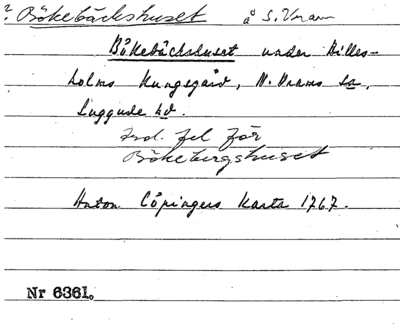 ? Bökebäckshuset å S. Vram
Bökebäckshuset under Billes-
holms Kungsgård, N. Vrams sn,
Luggude hd.
trol. fel för
Bökebergshuset
Anton Cöpingers Karta 1767.
Nr 6361.